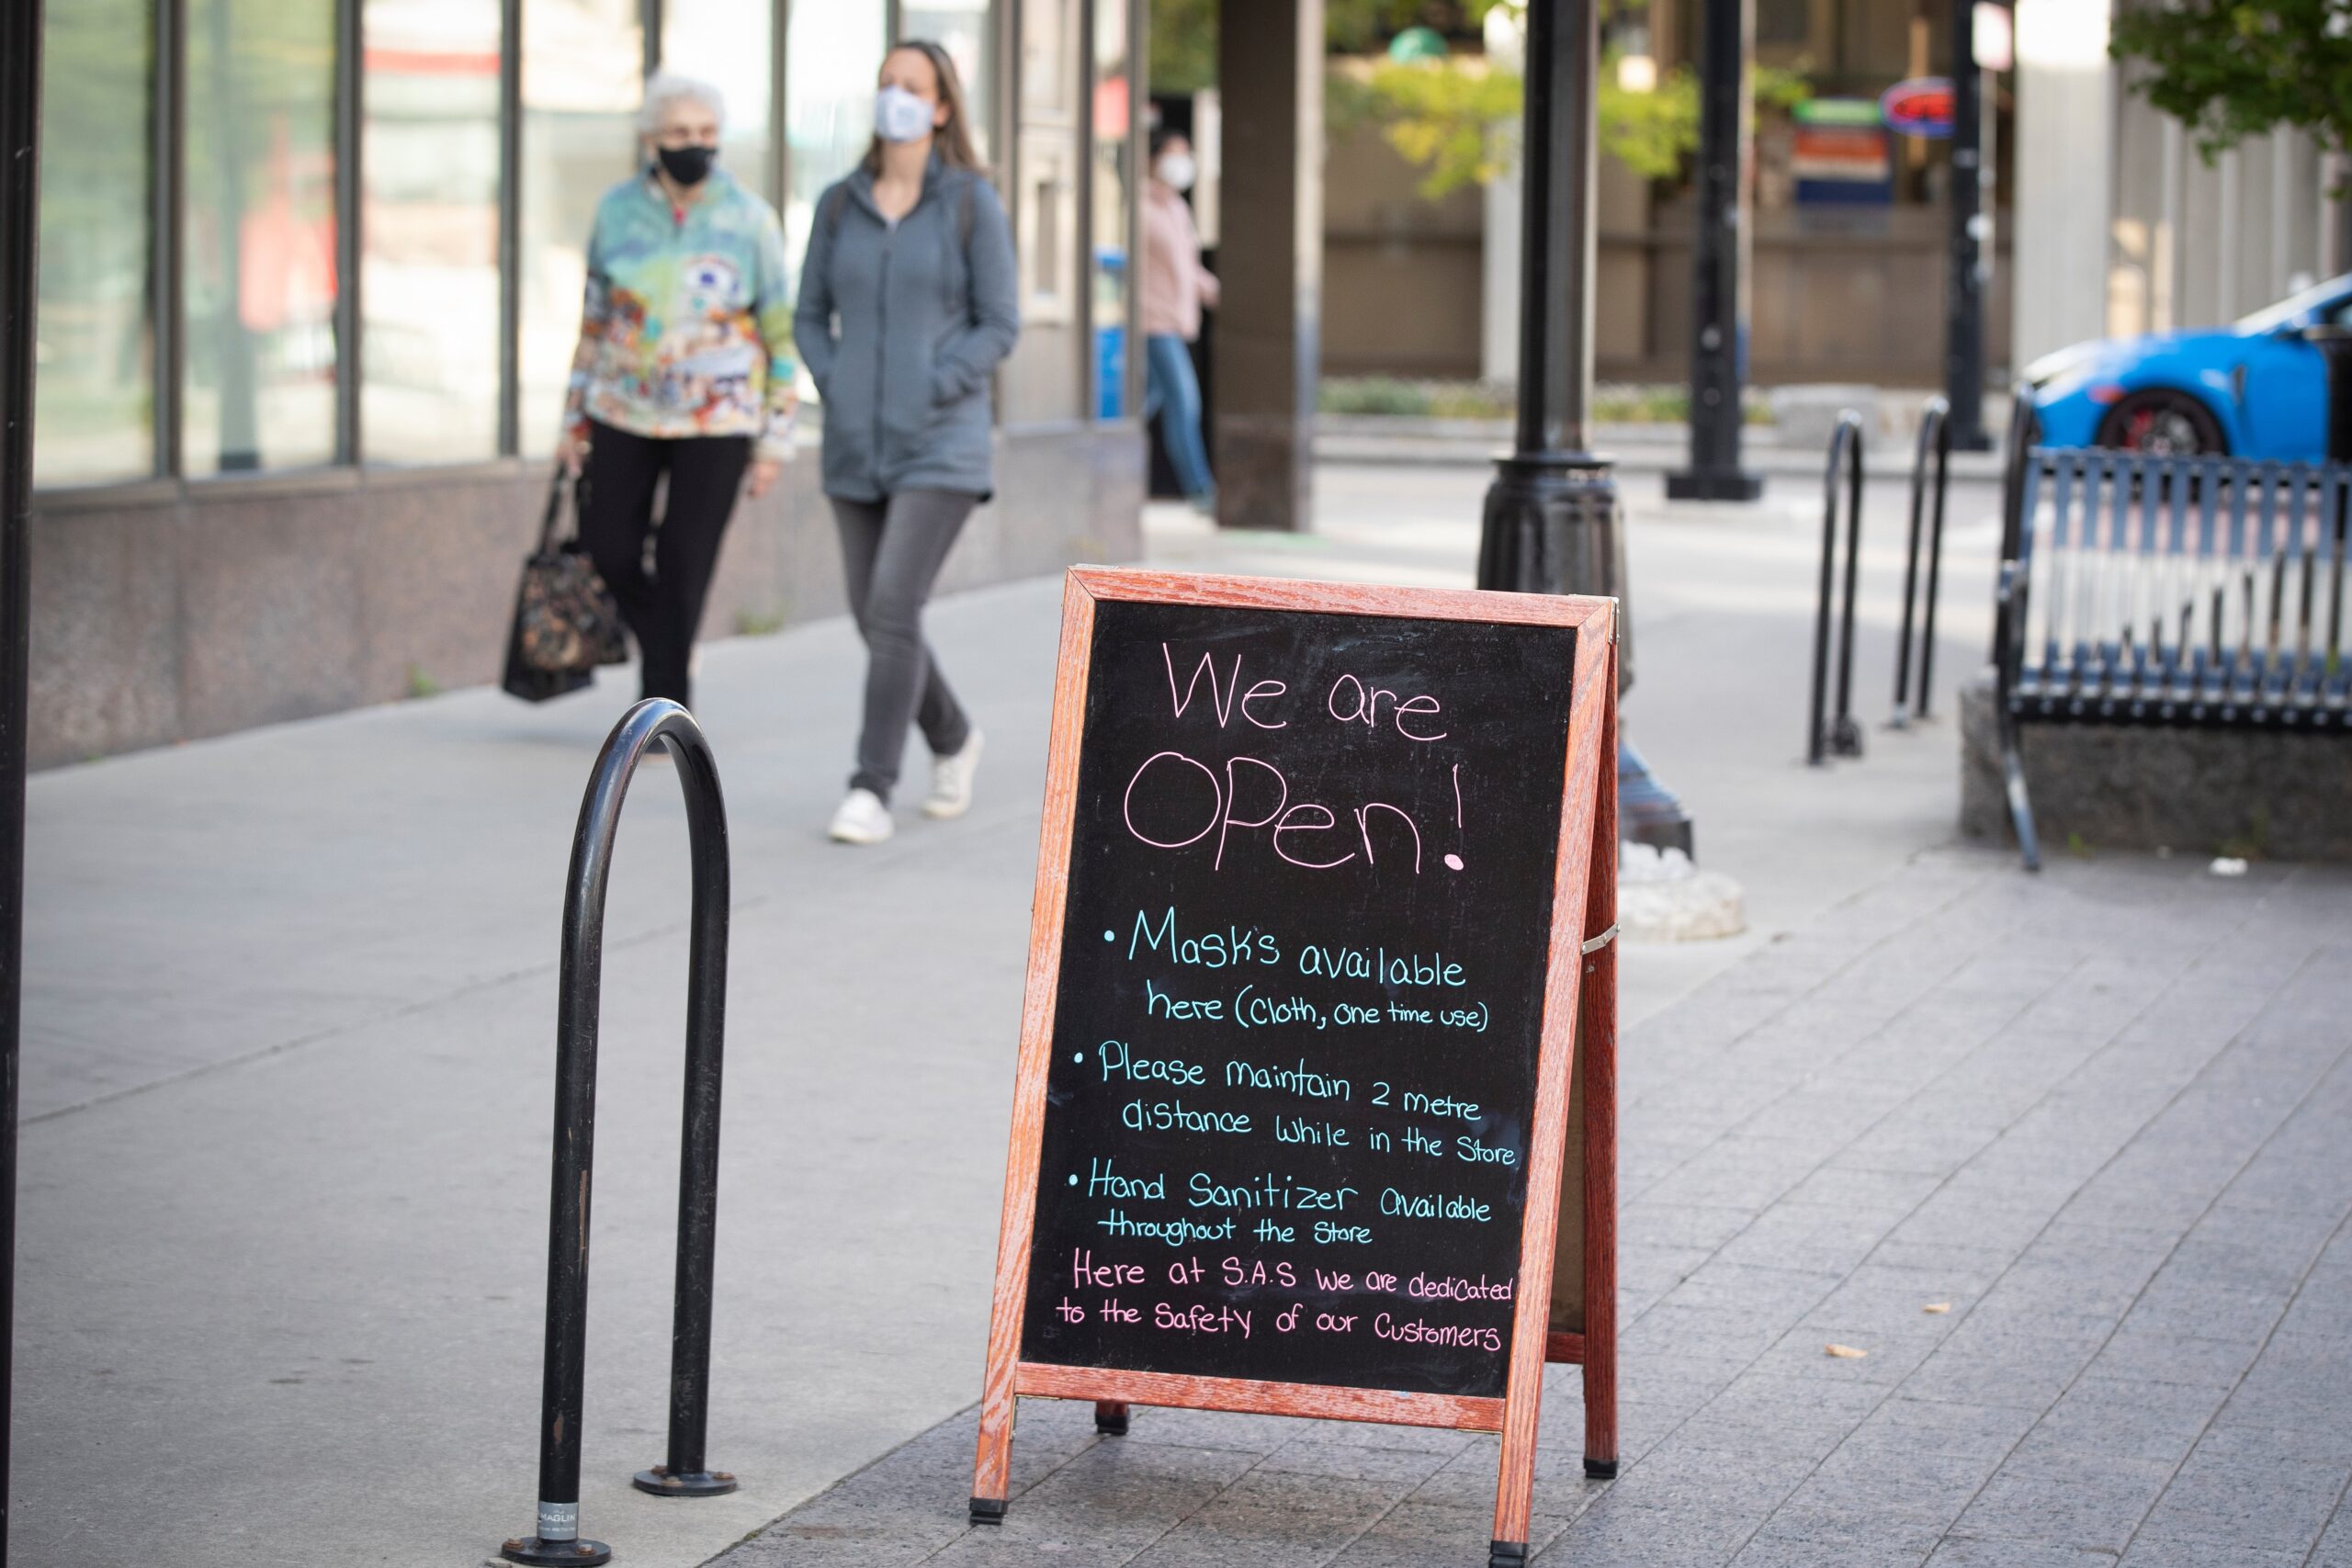 We are
OPen!
• Masks available
here (Cloth, one time use)
• Please maintain 2 metre
distance while in the Store
• Hand Sanitizer available
throughout the Store
Here at S.A.S we are dedicated
to the Safety of our Customers
MAGLIN